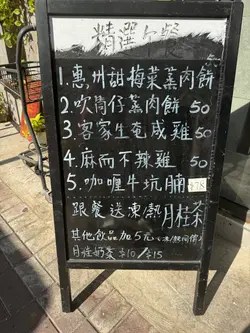 精選午餐
1.惠州甜梅菜蒸肉餅
2.吹筒仔蒸肉餅 50
3 客家生菴咸雞 50
4.麻而不辣雞 50
5.咖喱牛坑腩 $78
跟餐送凍/熱月桂茶
其他飲品加5元
月桂奶麥 $10/$15